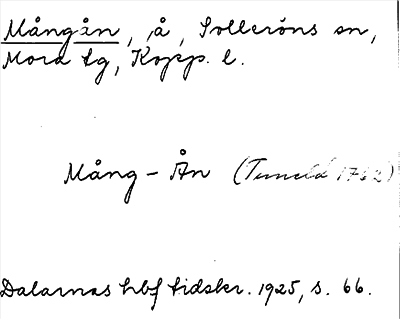 Mångån, å, Solleröns sn,
Mora tg, Kopp. l.
Mång-Ån (Tuneld 1762)
Dalarnas hbf tidskr. 1925, s. 66.